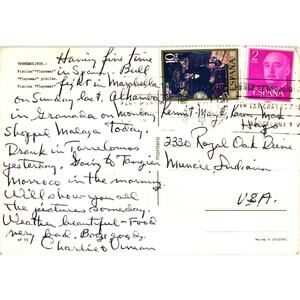 TORREMOLINOS.-
Piscina "Playamar"
"Playamar" piscine.
"Playamar"
Having fine time
in Spain. Bull
fight in Marbella
on Sunday last. Alhambra
in Granada on monday
shopped Malaga today.
Drank in Torremolinos
yesterday. Going to Tangier
Morroco in the morning.
Will show you all
the pictures someday.
Weather beautiful - Food
very bad. Booze good.
Charlie & Uman
10
ESPAÑA
2
PTAS
ESPAÑA
Kermit - Mary E, Karen, Mark
3330 Royal Oak Drive
Muncie Indiana
USA.